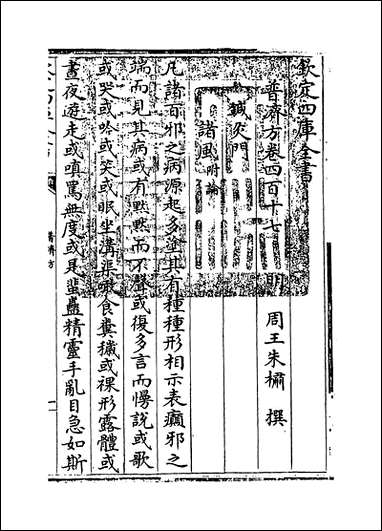 欽定四庫全書
普濟方卷四百十七
明 周王朱橚 撰
鍼灸門
諸風 附論
凡諸百邪之病源起多塗其有種種形相示表癲邪之
端而見其病或有默默而不聲或復多言而慢說或歌
或哭或吟或笑或眠坐溝渠噉食糞穢或裸形露體或
晝夜遊走或嗔罵無度或是蜚蠱精靈手亂目急如斯
普濟方
一